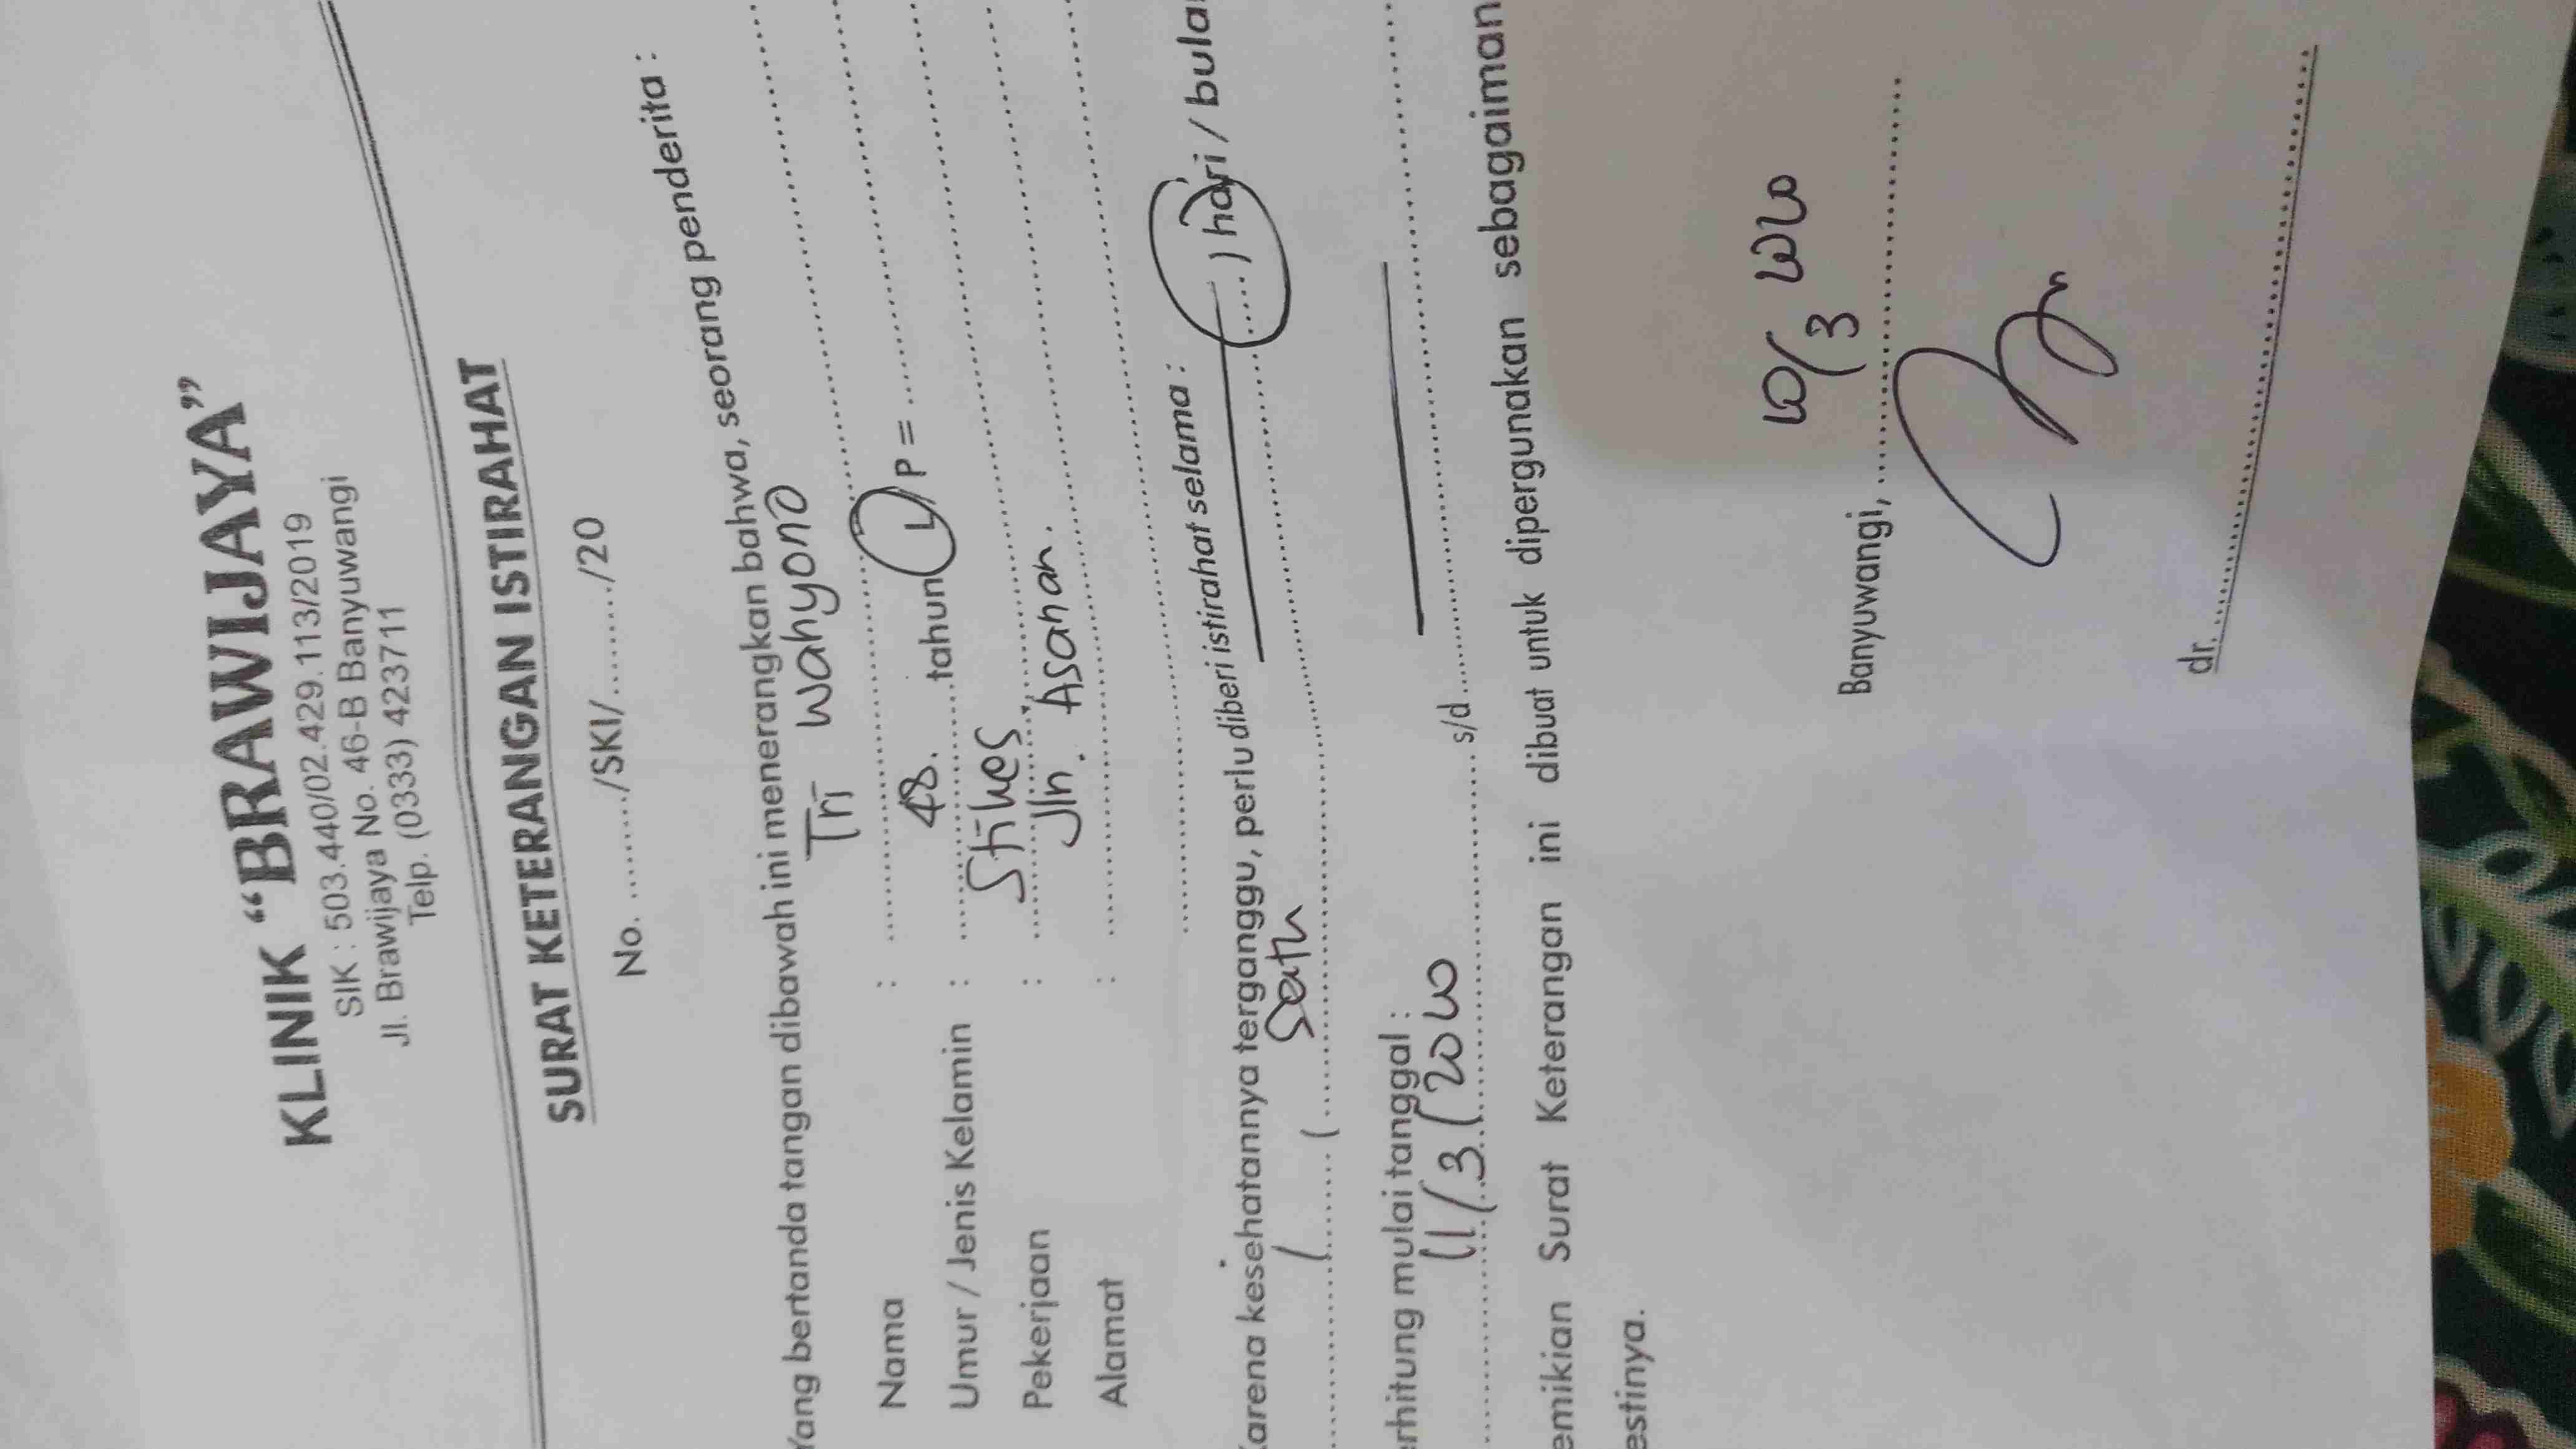 KLINIK “BRAWIJAYA”
SIK : 503.440/02.429.113/2019
Jl. Brawijaya No. 46-B Banyuwangi
Telp. (0333) 423711
SURAT KETERANGAN ISTIRAHAT
No. ........./SKI/........./20
Yang bertanda tangan dibawah ini menerangkan bahwa, seorang penderita :
Nama : Tri Wahyono
Umur / Jenis Kelamin : 48. tahun L/ P = ..........
Pekerjaan : Stikes.
Alamat : Jln. Asahan.
Karena kesehatannya terganggu, perlu diberi istirahat selama :
1 ( Satu ..... ) hari / bula
erhitung mulai tanggal :
11/3/2020 s/d
emikian Surat Keterangan ini dibuat untuk dipergunakan sebagaiman
estinya.
Banyuwangi, 10/3 2020
dr.